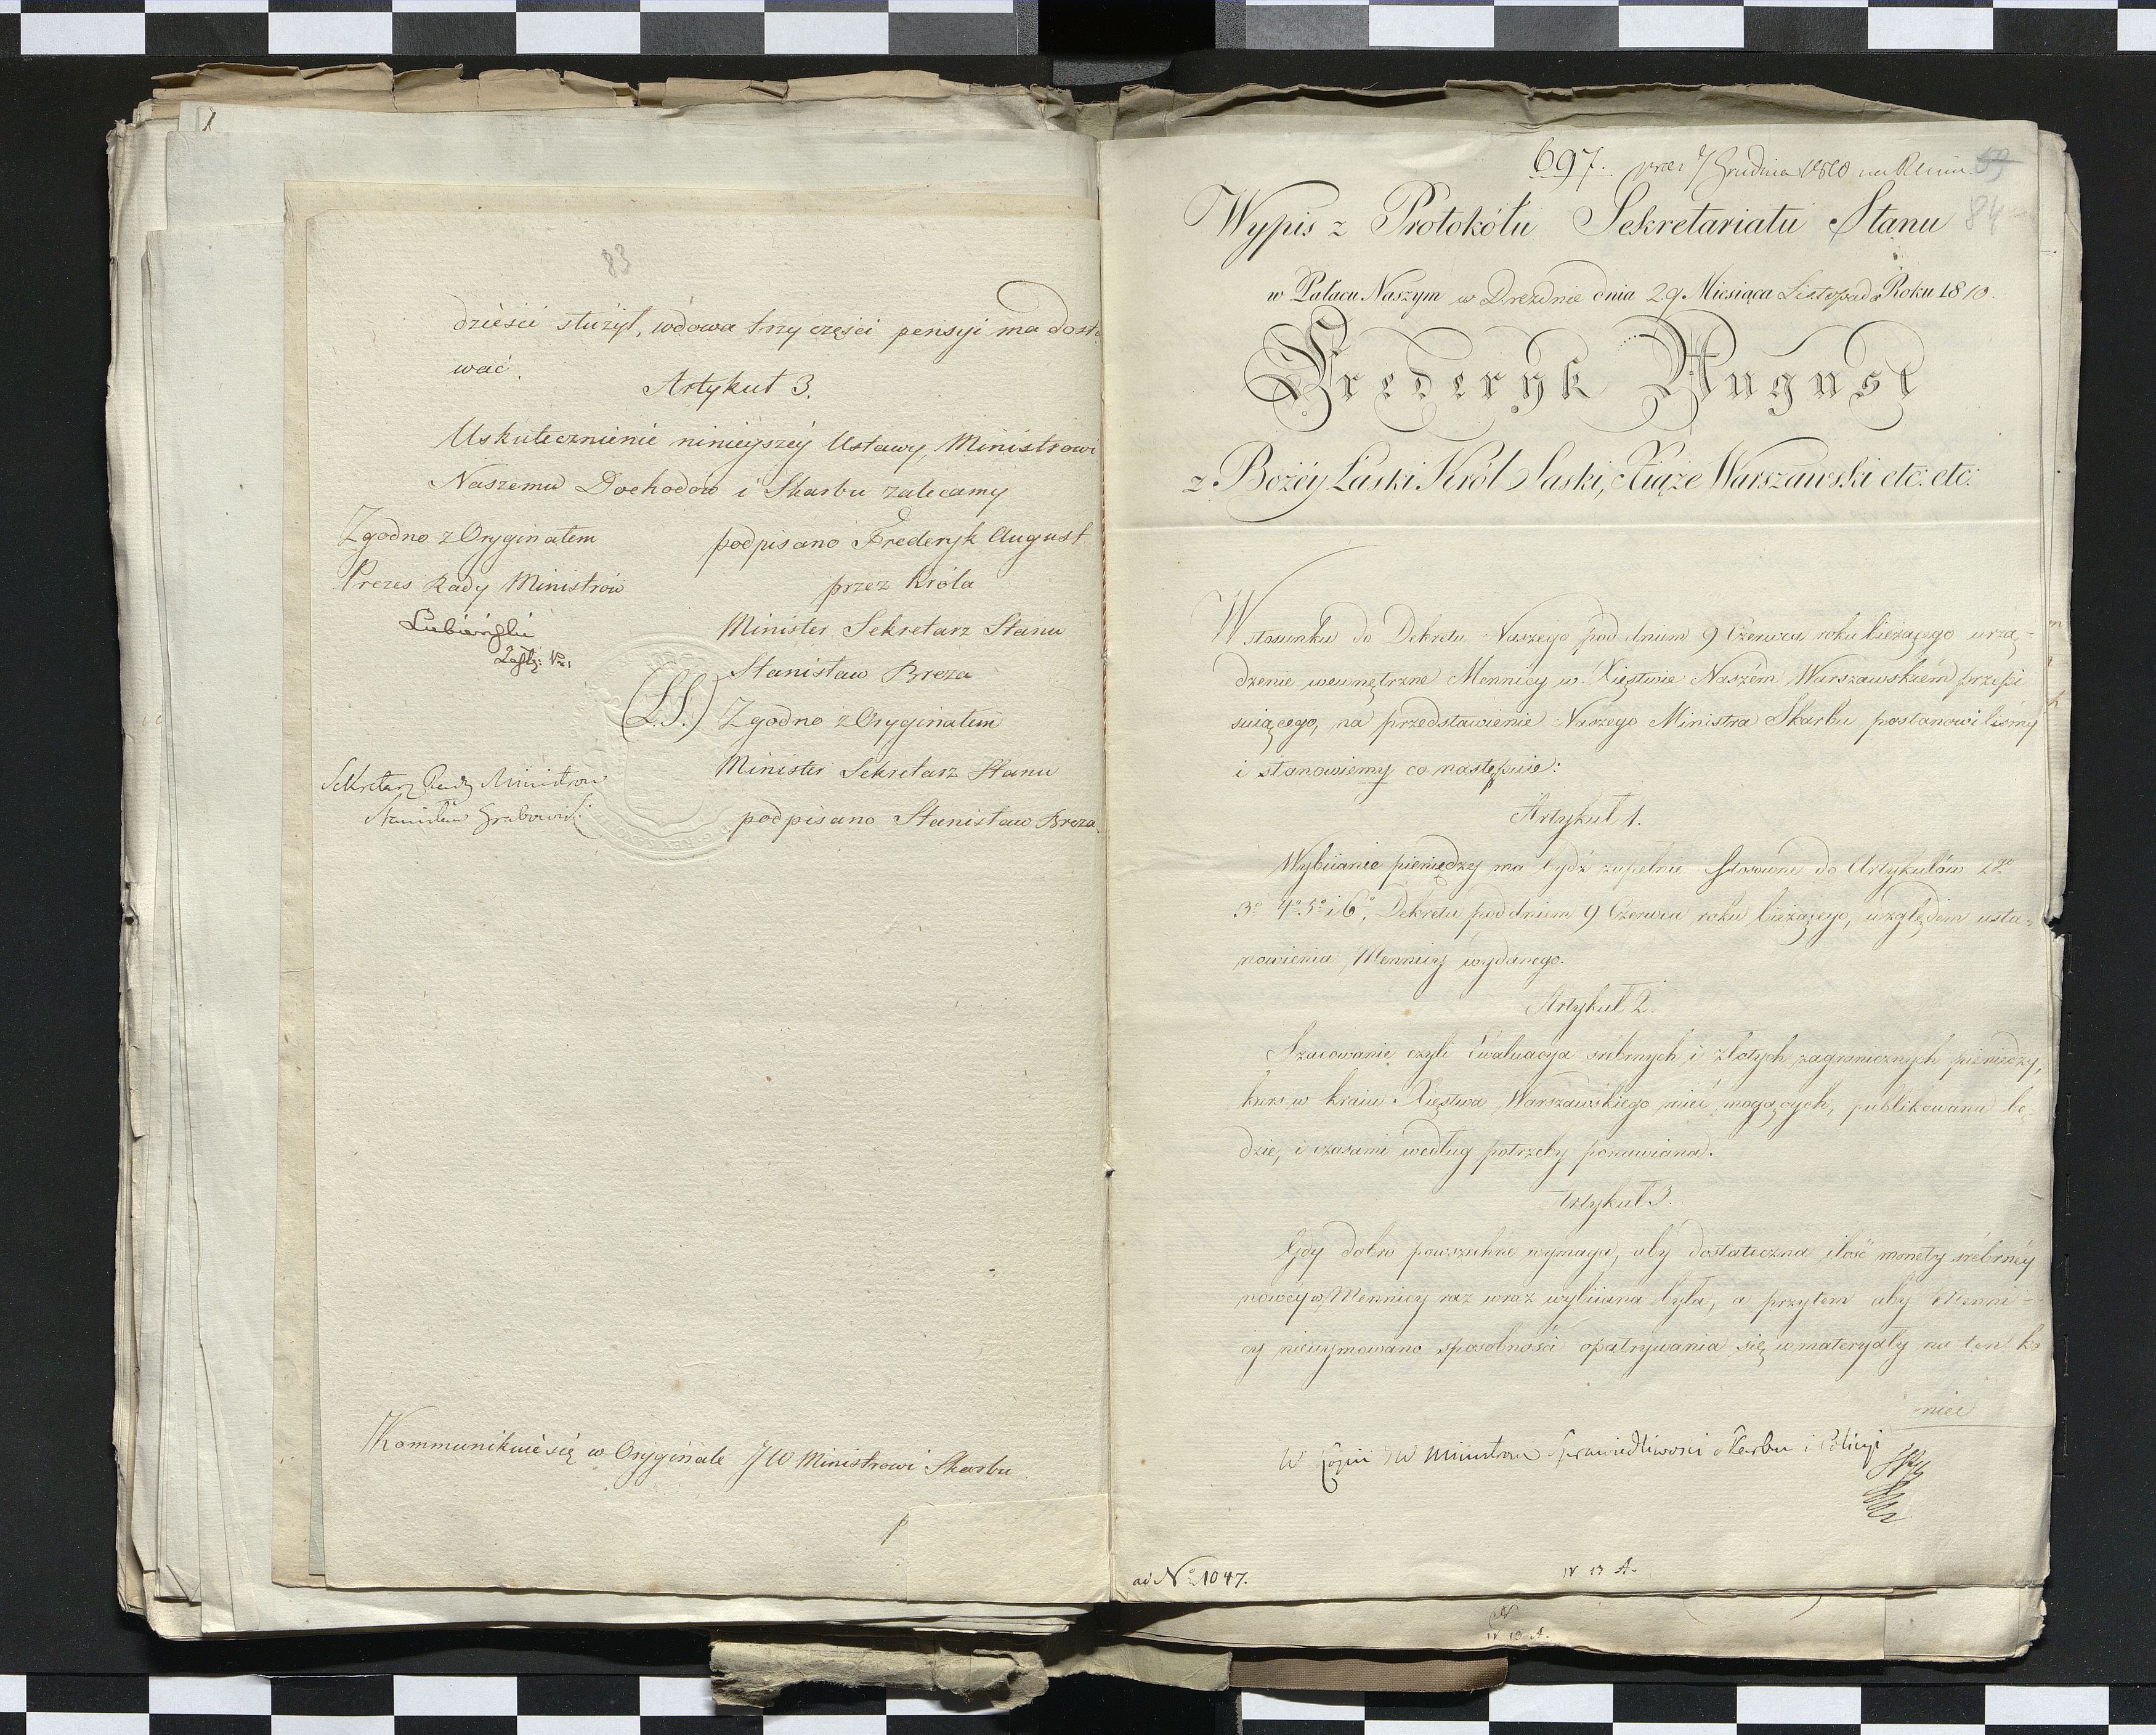 83
dzieści służył, wdowa trzy części pensyi ma dosta
wać.
Artykuł 3.
Uskutecznienie ninieyszéy Ustawy, Ministrowi
Naszemu Dochodów i Skarbu zalecamy
Zgodno z Oryginałem
Prezes Rady Ministrów
Lubieński
Zastę: Pr:
Sekretarz Rady Ministrów
Stanisław Grabowski
podpisano Frederyk August
przez Króla
Minister Sekretarz Stanu
Stanisław Breza
(L.S.) Zgodno z Oryginałem
Minister Sekretarz Stanu
podpisano Stanisław Breza.
Kommunikuie się w Oryginale JW Ministrowi Skarbu.
697. 7 Grudnia 1810
84
Wypis z Protokółu Sekretariatu Stanu
w Pałacu Naszym w Dreznie dnia 29 Miesiąca Listopada Roku 1810.
Frederyk August
z Bożéy Łaski Król Saski, Xiąże Warszawski etc: etc:
W stosunku do Dekretu Naszego pod dniem 9 Czerwca roku bieżącego urzą=
dzenie wewnętrzne Mennicy w Xięstwie Naszém Warszawskiém przepi
suiącego, na przedstawienie Naszego Ministra Skarbu postanowiliśmy
i stanowiemy co następuie:
Artykuł 1.
Wybiianie pieniędzy ma bydź zupełnie stosowne do Artykułów 2go
3º 4º 5º i 6º, Dekretu pod dniem 9 Czerwca roku bieżącego, względem usta=
nowienia Mennicy wydanego.
Artykuł 2.
Szacowanie czyli Ewaluacya srebrnych i złotych zagranicznych pieniędzy,
kurs w kraiu Xięstwa Warszawskiego mieć mogących, publikowana bę
dzie, i czasami według potrzeby ponawiana.
Artykuł 3.
Gdy dobro powszechne wymaga, aby dostateczna ilość monety srébrnéy
nowéy w Mennicy raz wraz wybiiana była, a przytem aby Menni=
cy nieuymowano sposobności opatrywania się w materyały na ten ko
niec
W Copii JW Ministrom Sprawiedliwości Skarbu i Policyi
ad Nº 1047.
IV 13 A.
IV 13 A.